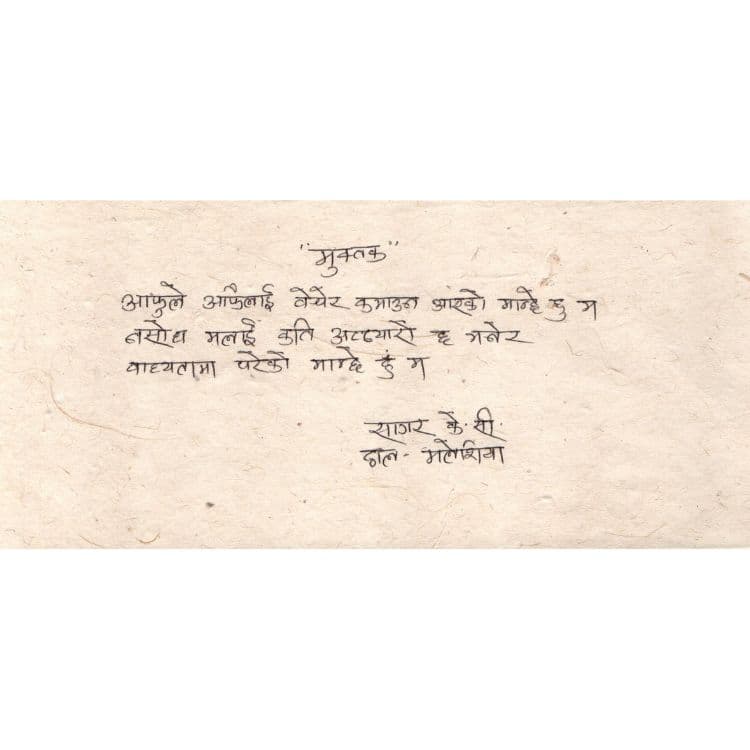 "मुक्तक"
आफुले आफैलाई वेचेर कमाउन आएको मान्छे हु म
नसोध मलाई कति अठ्यारो छ भनेर
वाध्यतामा परेको मान्छे हुं म
सागर के.सी.
हाल- मलेशिया